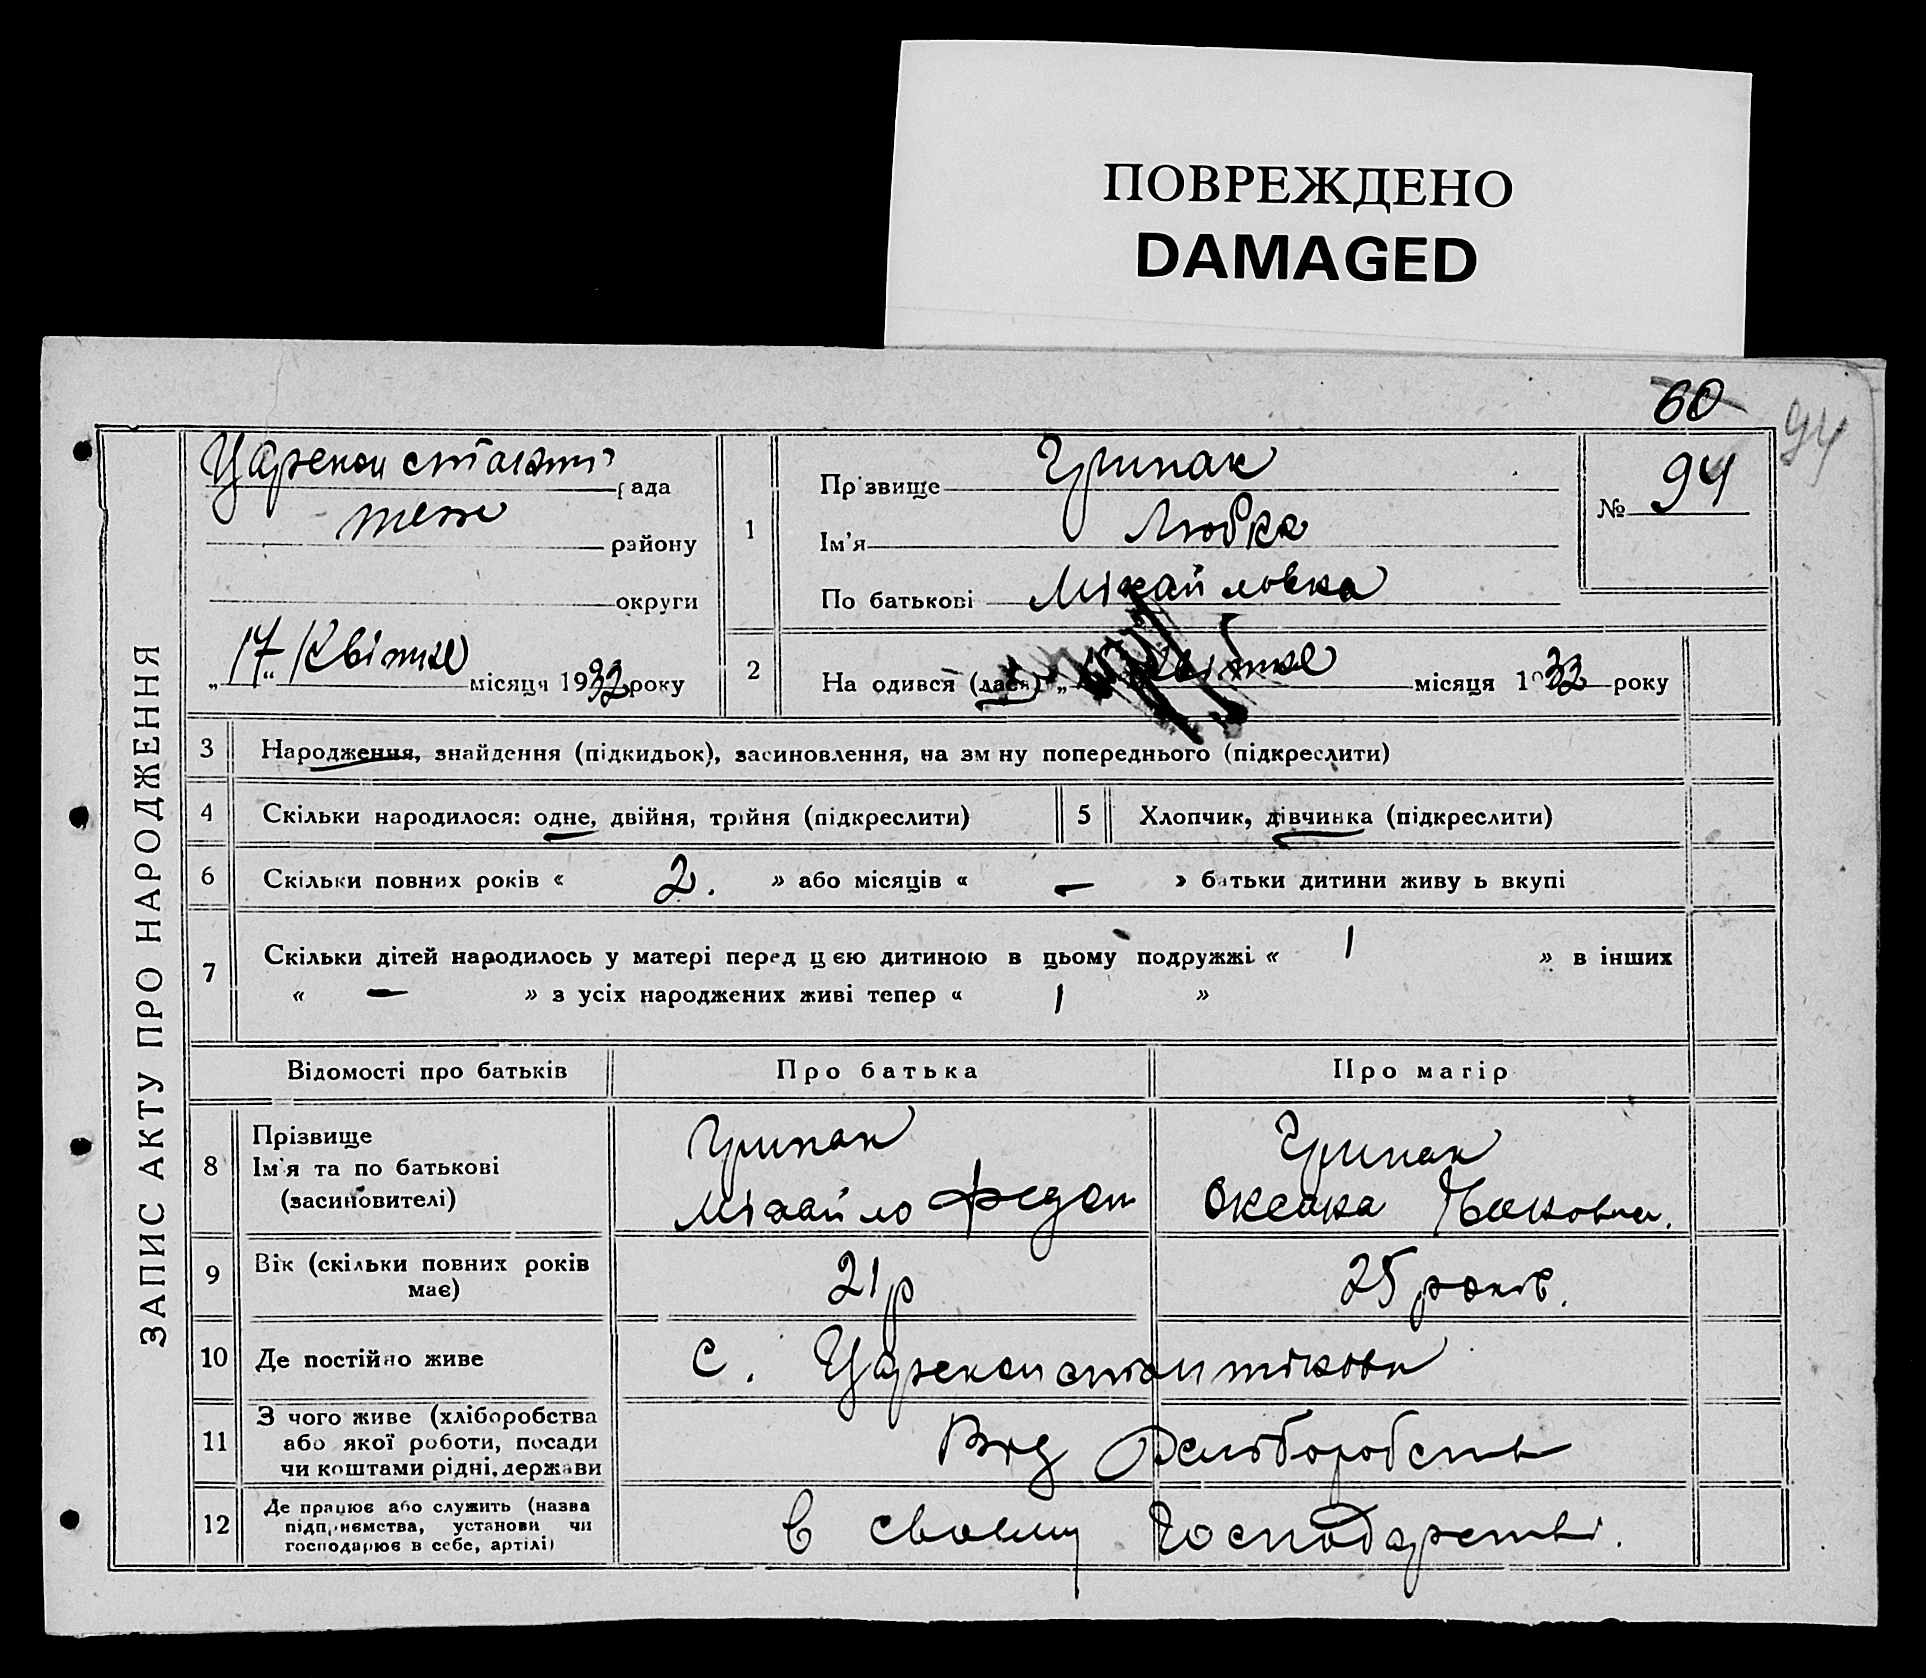 ПОВРЕЖДЕНО
DAMAGED
60
94
ЗАПИС АКТУ ПРО НАРОДЖЕННЯ
рада
теж
району
округи
„17“ Квітня місяця 1932 року
1
Прізвище
Ім'я Любка
По батькові Міхайловна
№ 94
2
На одився (лася) „ квітня місяця 1932 року
3 Народження, знайдення (підкидьок), засиновлення, на зм ну попереднього (підкреслити)
4 Скільки народилося: одне, двійня, трійня (підкреслити)
5 Хлопчик, дівчинка (підкреслити)
6 Скільки повних років « 2. » або місяців « — » батьки дитини живу ь вкупі
7 Скільки дітей народилось у матері перед цєю дитиною в цьому подружжі « 1 » в інших
« — » з усіх народжених живі тепер « 1 »
Відомості про батьків Про батька Про матір
8 Прізвище
Ім'я та по батькові
(засиновителі)
Міхайло Федот
Оксана Яковна.
9 Вік (скільки повних років
має)
21 р
25 років.
10 Де постійно живе с.
11 З чого живе (хліборобства
або якої роботи, посади
чи коштами рідні, держави
Від
12 Де працює або служить (назва
підприємства, установи чи
господарює в себе, артілі)
в своему Господарстві.